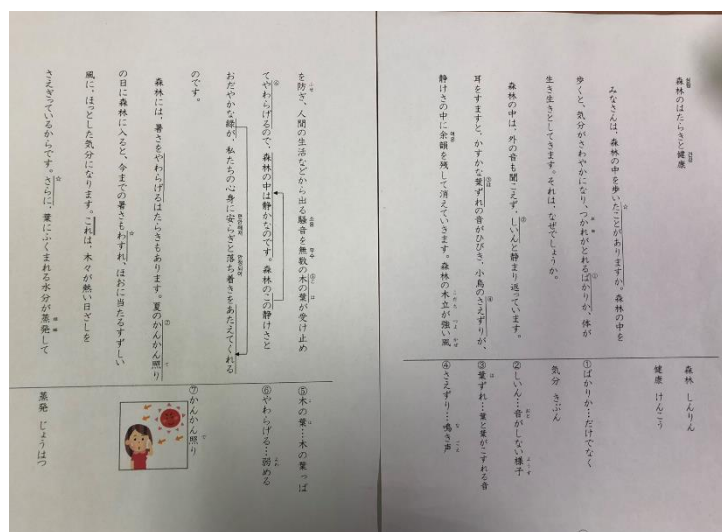 森林のはたらきと健康
みなさんは、森林の中を歩いたことがありますか。森林の中を
歩くと、気分がさわやかになり、つかれがとれるばかりか、体が
生き生きとしてきます。それは、なぜでしょうか。
森林の中は、外の音も聞こえず、しいんと静まり返っています。
耳をすますと、かすかな葉ずれの音がひびき、小鳥のさえずりが、
静けさの中に余韻を残して消えていきます。森林の木立が強い風
森林 しんりん
健康 けんこう
①ばかりか…だけでなく
気分 きぶん
②しいん…音がしない様子
③葉ずれ…葉と葉がこすれる音
④さえずり…鳴き声
を防ぎ、人間の生活などから出る騒音を無数の木の葉が受け止め
てやわらげるので、森林の中は静かなのです。森林のこの静けさと
おだやかな緑が、私たちの心身に安らぎと落ち着きをあたえてくれる
のです。
森林には、暑さをやわらげるはたらきもあります。夏のかんかん照り
の日に森林に入ると、今までの暑さもわすれ、ほおに当たるすずしい
風に、ほっとした気分になります。これは、木々が熱い日ざしを
さえぎっているからです。さらに、葉にふくまれる水分が蒸発して
⑤木の葉…木の葉っぱ
⑥やわらげる…弱める
⑦かんかん照り
蒸発 じょうはつ